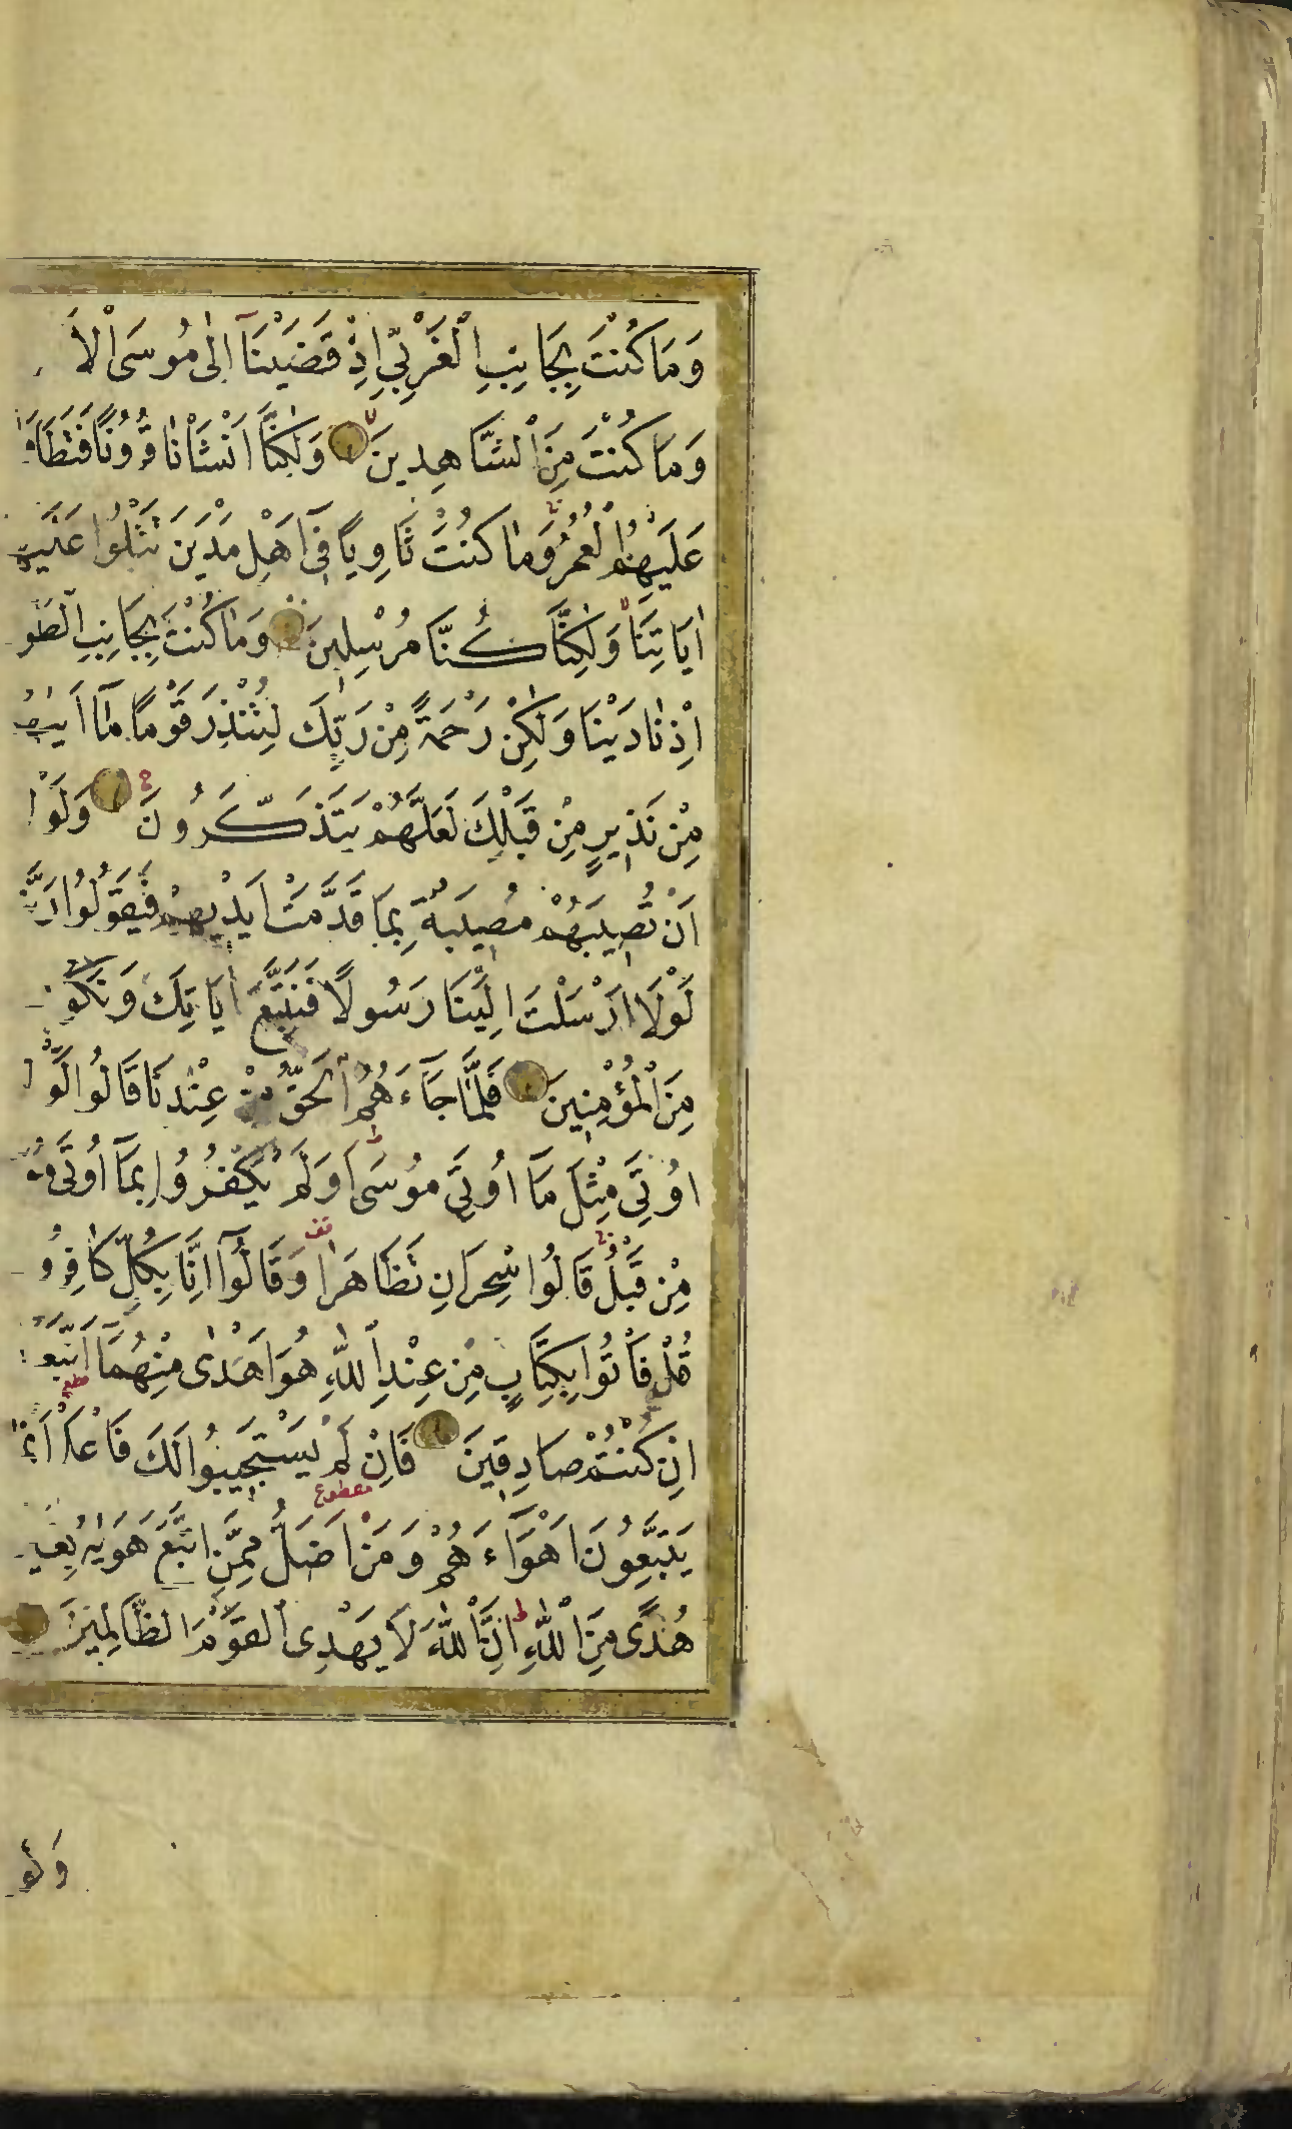 وَمَا كُنْتَ بِجَانِبِ الْغَرْبِيِّ اِذْ قَضَيْنَآ اِلٰى مُوسَى الْاَ
وَمَا كُنْتَ مِنَ الشَّاهِدِينَ وَلٰكِنَّا اَنْشَأْنَا قُرُونًا فَتَطَاوَ
عَلَيْهِمُ الْعُمُرُ وَمَا كُنْتَ ثَاوِيًا فِىٓ اَهْلِ مَدْيَنَ تَتْلُوا عَلَيْهِ
اٰيَاتِنَا وَلٰكِنَّا كُنَّا مُرْسِلِينَ وَمَا كُنْتَ بِجَانِبِ الطُّو
اِذْ نَادَيْنَا وَلٰكِنْ رَحْمَةً مِنْ رَبِّكَ لِتُنْذِرَ قَوْمًا مَآ اَتٰيهُ
مِنْ نَذِيرٍ مِنْ قَبْلِكَ لَعَلَّهُمْ يَتَذَكَّرُونَ وَلَوْلَا
اَنْ تُصِيبَهُمْ مُصِيبَةٌ بِمَا قَدَّمَتْ اَيْدِيهِمْ فَيَقُولُوا رَبَّنَ
لَوْلَآ اَرْسَلْتَ اِلَيْنَا رَسُولًا فَنَتَّبِعَ اٰيَاتِكَ وَنَكُو
مِنَ الْمُؤْمِنِينَ فَلَمَّا جَآءَهُمُ الْحَقُّ مِنْ عِنْدِنَا قَالُوا لَوْلَ
اُوتِىَ مِثْلَ مَآ اُوتِىَ مُوسَى اَوَلَمْ يَكْفُرُوا بِمَآ اُوتِىَ مُ
مِنْ قَبْلُ قَالُوا سِحْرَانِ تَظَاهَرَا وَقَالُوٓا اِنَّا بِكُلٍّ كَافِرُو
قُلْ فَأْتُوا بِكِتَابٍ مِنْ عِنْدِ اللّٰهِ هُوَ اَهْدٰى مِنْهُمَآ اَتَّبِعْ
اِنْ كُنْتُمْ صَادِقِينَ فَاِنْ لَمْ يَسْتَجِيبُوا لَكَ فَاعْلَمْ اَنَّمَا
يَتَّبِعُونَ اَهْوَآءَهُمْ وَمَنْ اَضَلُّ مِمَّنِ اتَّبَعَ هَوٰيهُ بِغَيْ
هُدًى مِنَ اللّٰهِ اِنَّ اللّٰهَ لَا يَهْدِى الْقَوْمَ الظَّالِمِينَ
وَلَقَ